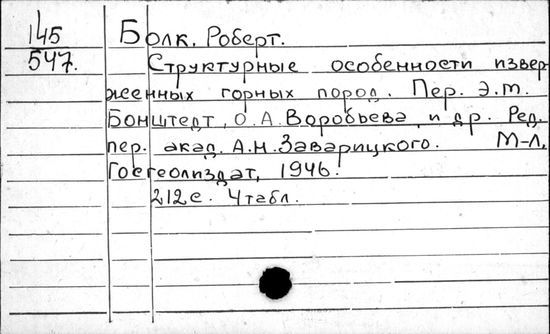 145 Болк. Роберт.
547. Структурные особенности извер-
женных горных пород. Пер. Э.М.
Бонштедт, О.А. Воробьева и др. Ред.
пер. акад. А.Н. Заварицкого. М-Л,
Госгеолиздат, 1946.
212с. 4табл.